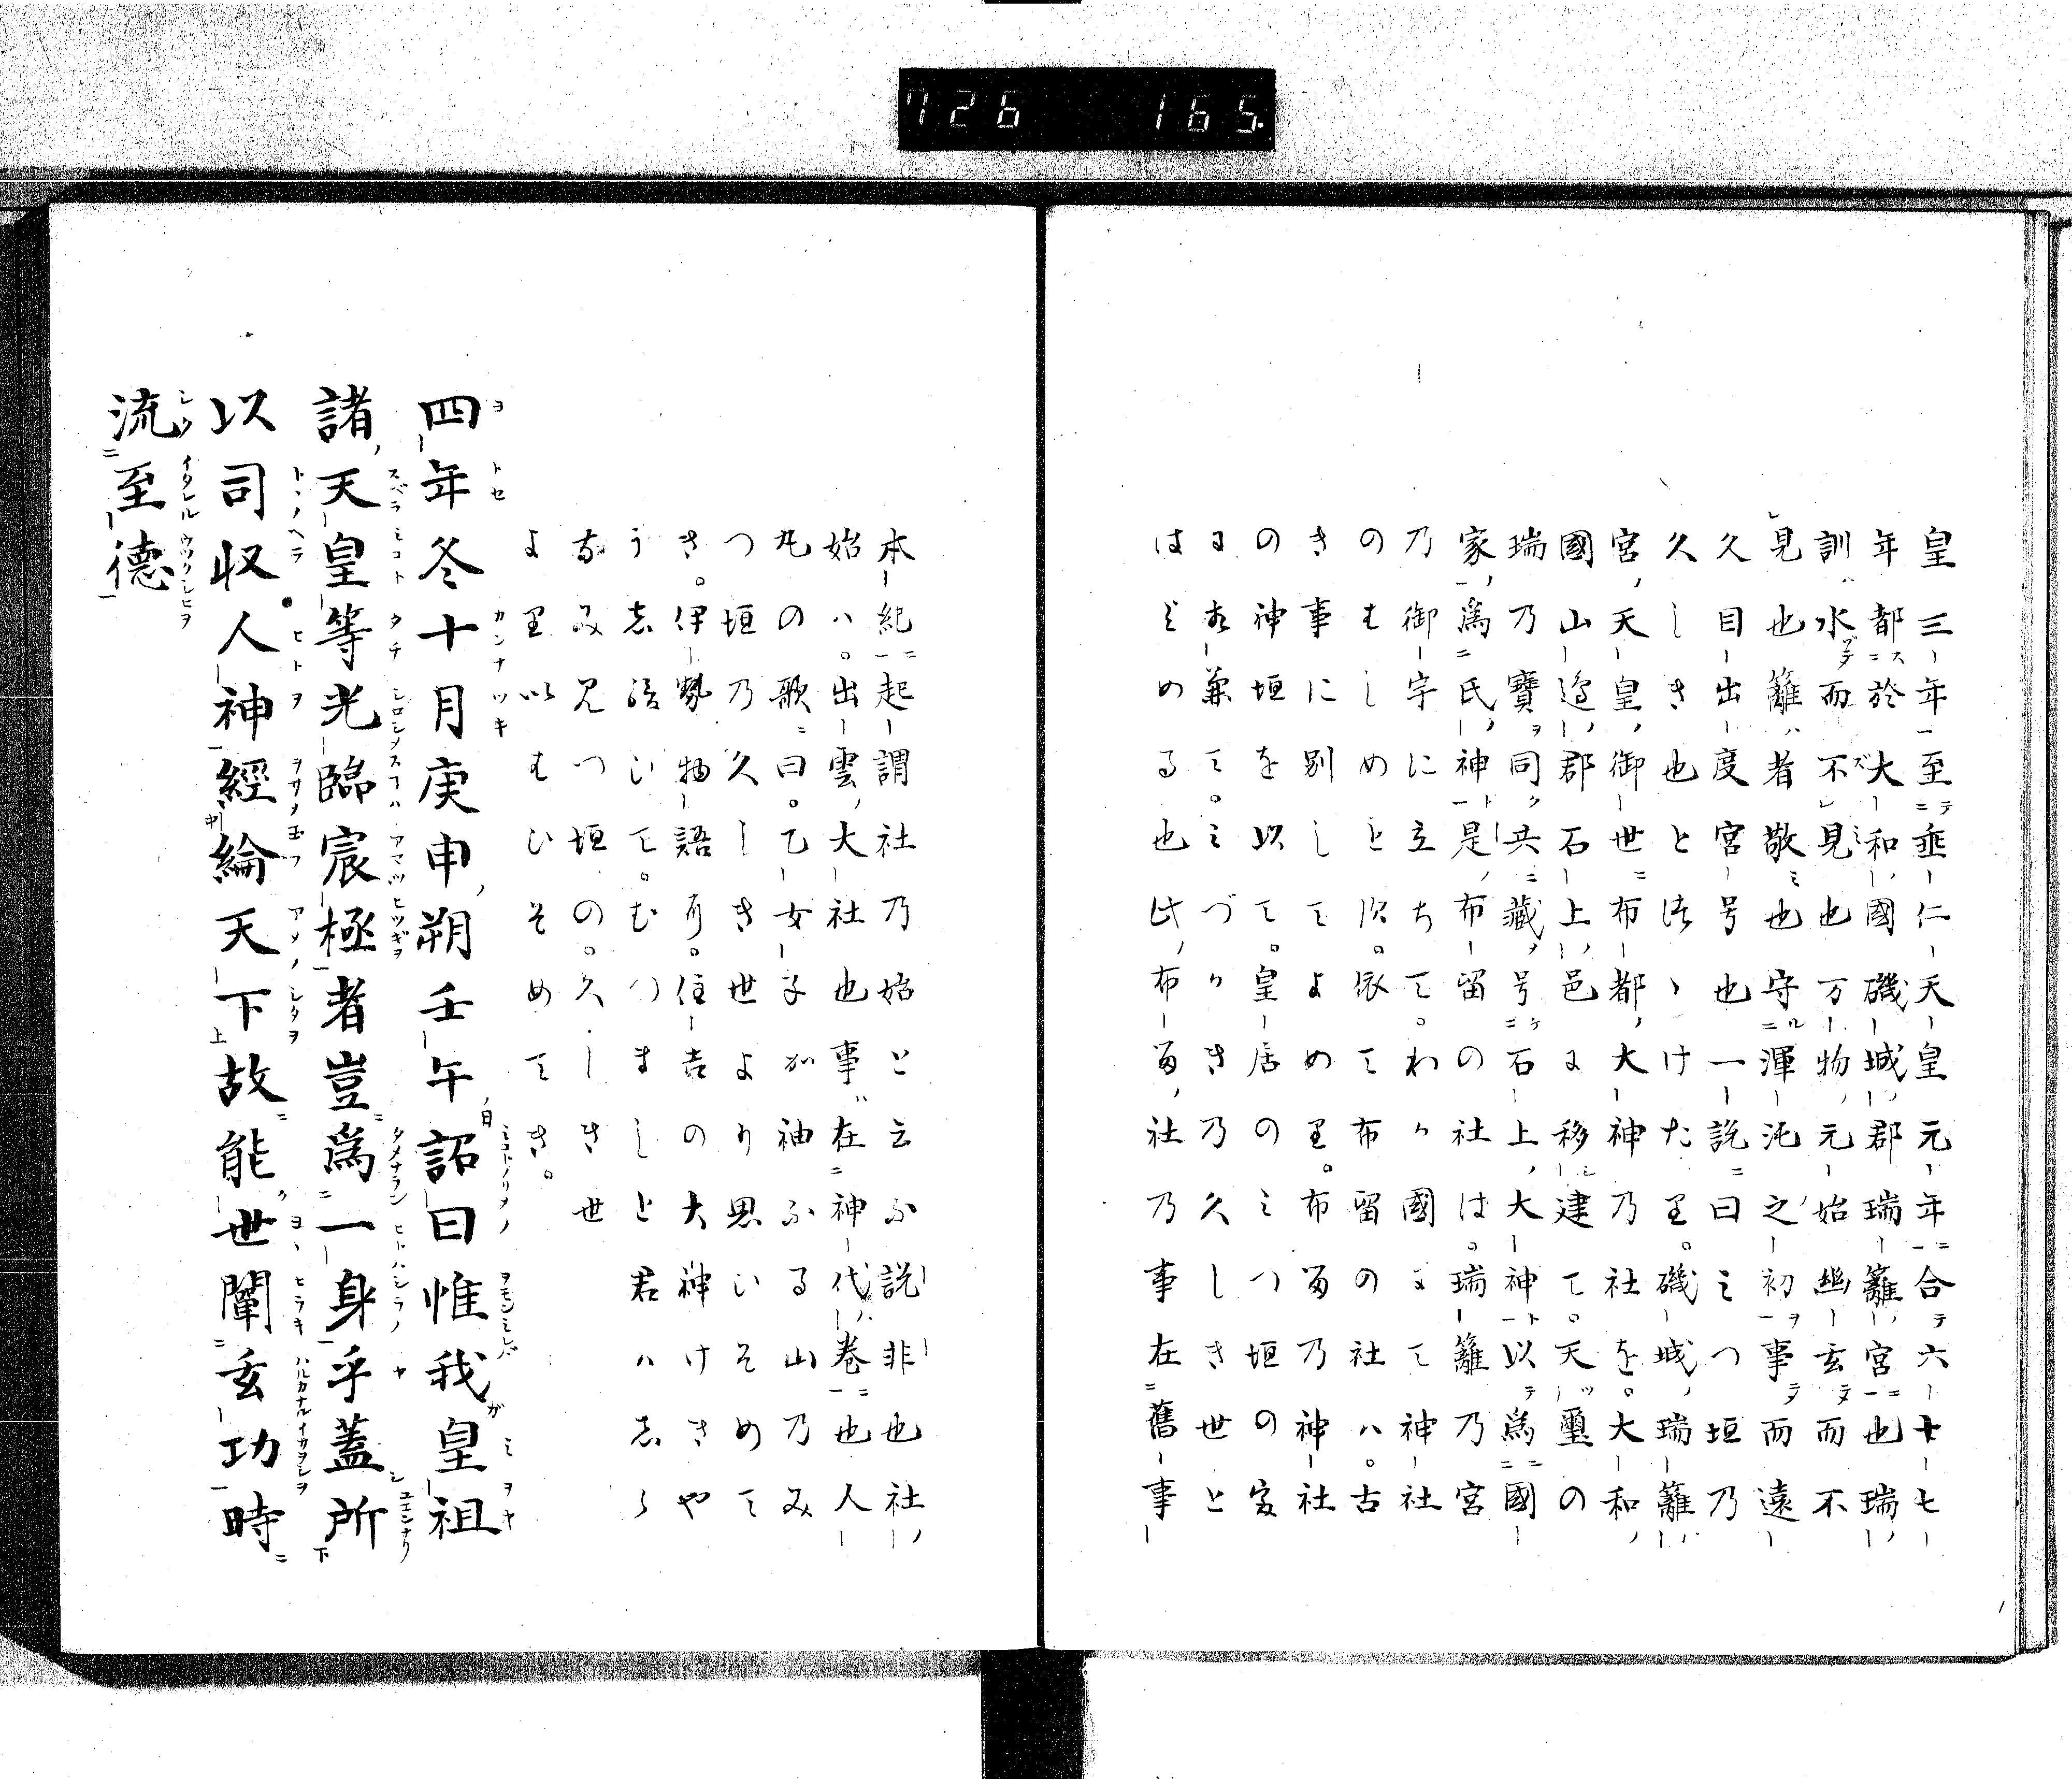 726 165.
皇三年至垂仁天皇元年合六十七
年都於大和國磯城郡瑞籬宮也瑞
訓水而不見也万物元始幽玄而不
見也籬者敬也守渾沌之初事而遠
久目出度宮号也一說曰みつ垣乃
久しき也とつゝけたり。磯城瑞籬
宮天皇御世布都大神乃社を。大和
國山邊郡石上邑に移建て。天璽の
瑞乃寶同共藏号石上大神以爲國
家爲氏神是布留の社は。瑞籬乃宮
乃御宇に立ちて。わか國にて神社
のむしめと次。依て布留の社ハ。古
き事に別してよめり。布留乃神社
の神垣を以て。皇居のみつ垣の家
に春兼て。みづかき乃久しき世と
はよめる也此布留社乃事在舊事
本紀起謂社乃始と云ふ說非也社
始ハ。出雲大社也事在神代卷也人
丸の歌曰。乙女子か袖ふる山乃み
つ垣乃久しき世より思いそめて
き。伊勢物語有。住吉の大神けきや
うし給いて。むつましと君ハしら
なみみつ垣の。久しき世
よりいむひそめてき。
四年冬十月庚申朔壬午詔曰惟我皇祖
諸天皇等光臨宸極者豈爲一身乎蓋所
以司收人神經綸天下故能世闡玄功時
流至德